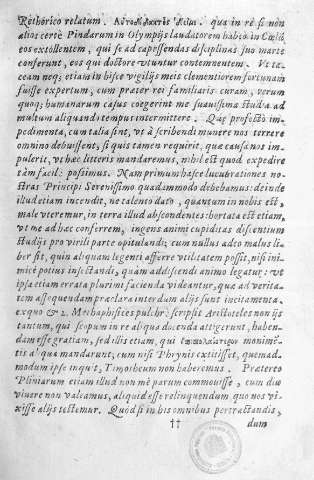 Rethorico relatum. Αὐτοδίδακτὸς εἰμι. qua in re si non
alios certè Pindarum in Olympijs laudatorem habeo in Cœlũ
eos extollentem, qui se ad capessendas disciplinas suo marte
conferunt, eos qui doctore vtuntur contemnentem. Vt ta-
ceam neq; etiam in hisce vigilijs meis clementiorem fortunam
fuisse expertum, cum præter rei familiaris curam, verum
quoq; humanarum casus coegerint me suauissima studia ad
multum aliquandò tempus intermittere. Quæ profectò im-
pedimenta, cum talia sint, vt à scribendi munere nos terrere
omnino debuissent, si quis tamen requirit, quæ causa nos im-
pulerit, vt hæc litteris mandaremus, nihil est quod expedire
tàm facilè possimus. Nam primum hasce lucubrationes no-
stras Principi Serenissimo quadammodo debebamus: deinde
illud etiam incendit, ne talento dato, quantum in nobis est,
male vteremur, in terra illud abscondentes: hortata est etiam,
vt me ad hæc conferrem, ingens animi cupiditas discentium
studijs pro virili parte opitulandi; cum nullus adeo malus li-
ber sit, quin aliquam legenti afferre vtilitatem possit, nisi ini-
micè potius insectandi, quàm addiscendi animo legatur: vt
ipsa etiam errata plurimi facienda videantur, quæ ad verita-
tem assequendam præclara interdum alijs sunt incitamenta.
ex quo & 2. Methaphisices pulchrè scripsit Aristoteles non ijs
tantum, qui scopum in re aliqua docenda attigerunt, haben-
dam esse gratiam, sed illis etiam, qui monimẽ-
tis aliqua mandarunt, cum nisi Phrynis extitisset, quemad-
modum ipse inquit, Timotheum non haberemus. Prætereo
Plinianum etiam illud non mè parum commouisse, cum diu
viuere non valeamus, aliquid esse relinquendum quo nos vi-
xisse alijs testemur. Quòd si in his omnibus pertractandis,
†† dum